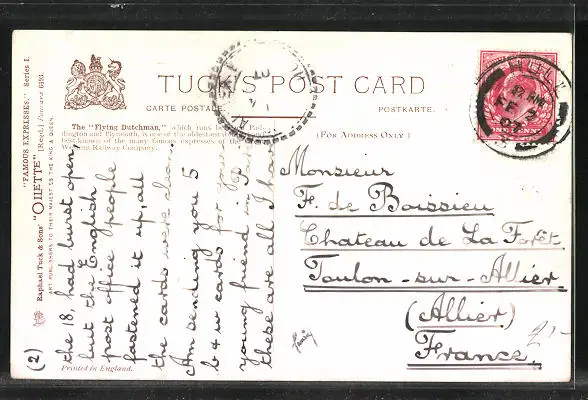 TUCK'S POST CARD
CARTE POSTALE.
POSTKARTE.
The "Flying Dutchman," which runs between Pad-
dington and Plymouth, is one of the oldest and
best-known of the many famous expresses of the
Railway Company.
(FOR ADDRESS ONLY.)
"FAMOUS EXPRESSES." Series I.
Raphael Tuck & Sons' "OILETTE" [Regd.] Postcard 6493.
ART PUBLISHERS TO THEIR MAJESTIES THE KING & QUEEN.
Printed in England.
(2)
the 18, had burst open,
but the English
post office people
fastened it up, all
the cards were
Am sending you 5
b & w cards for your
young friend in Paris
these are all I have
Monsieur
F. de Boissieu
Chateau de La Forêt
Toulon-sur-Allier
(Allier)
France.
2'-
ONE PENNY
HULL
FE 2